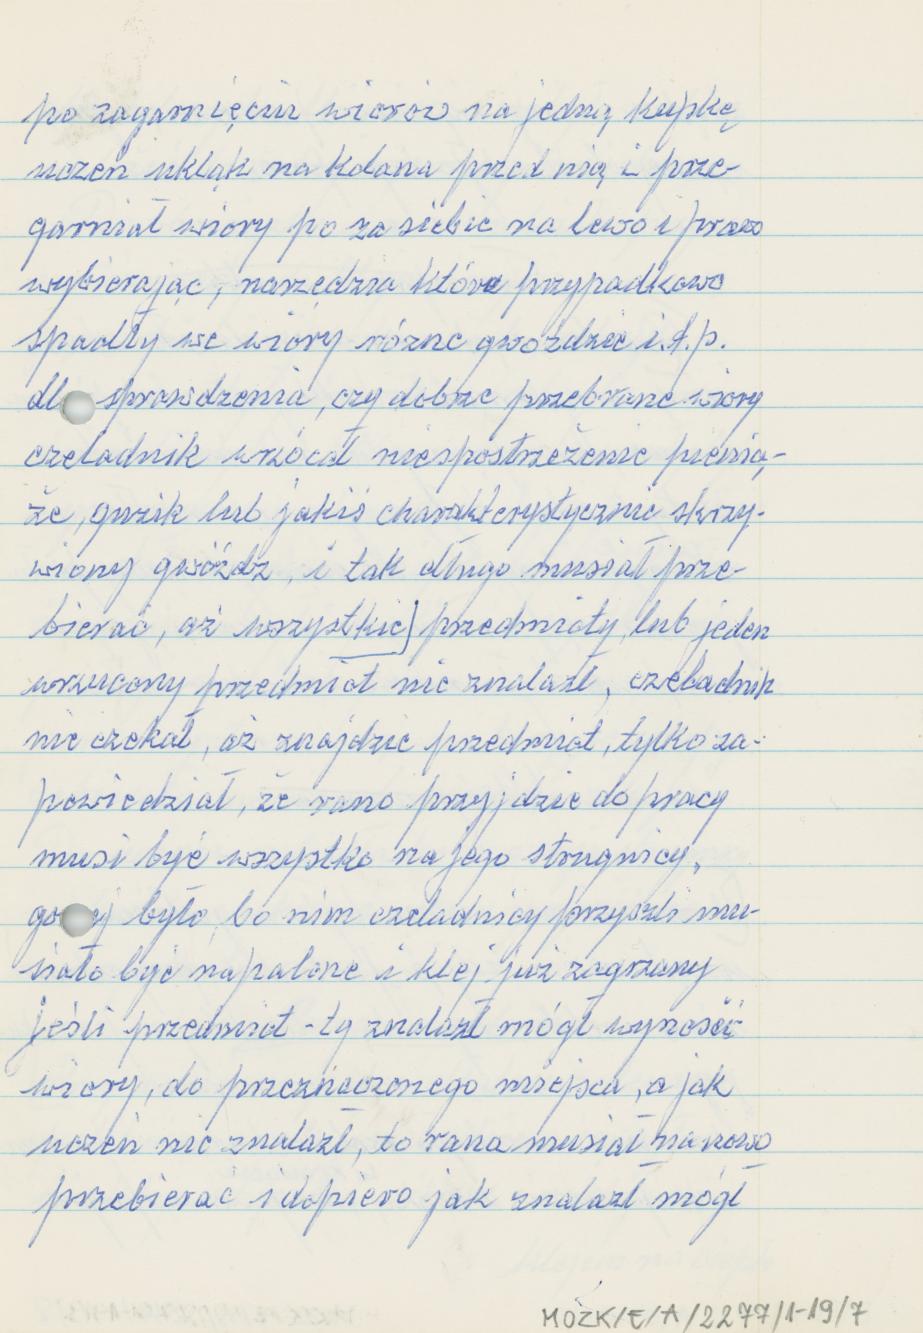 po zagarnięciu wiorów na jedną kupkę
uczeń ukląk na kolana przed nią i prze-
garniał wióry po za siebie na lewo i prawo
wybierając, narzędzia które przypadkowo
spadły we wióry różne gwoździe i.t.p.
dla sprawdzenia, czy dobrze przebrane wiory
czeladnik wrzócał niespostrzeżenie pienią-
że, guzik lub jakiś charakterystycznie skrzy-
wiony gwóźdz, i tak długo musiał prze-
bierać, aż wszystkie] przedmioty, lub jeden
wrzucony przedmiot nie znalazł, czeladnik
nie czekał, aż znajdzie przedmiot, tylko za-
powiedział, że rano przyjdzie do pracy
musi być wszystko na jego strugnicy,
gorzej było, bo nim czeladnicy przyszli mu-
siało być napalone i klej już zagrzany
jeśli przedmiot-ty znalazł mógł wynosić
wiory, do przeznaczonego miejsca, a jak
uczeń nie znalazł, to rana musiał na nowo
przebierać i dopiero jak znalazł mógł
MOZK/E/A/2277/1-19/7